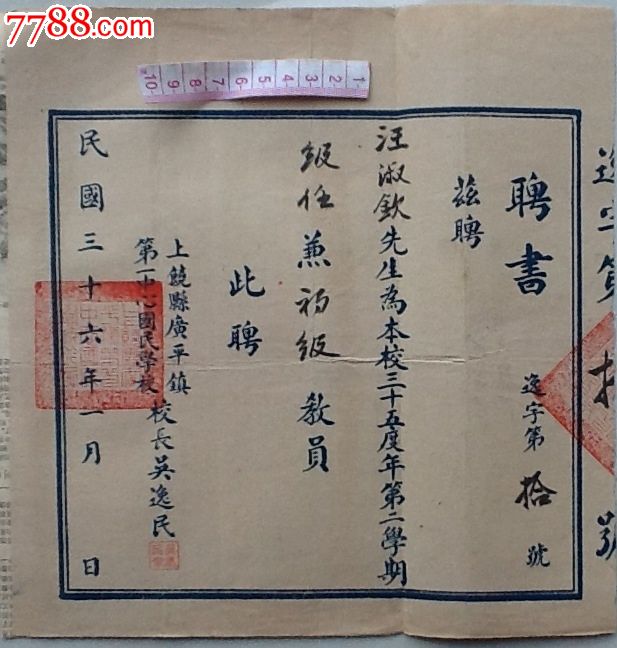 7788.com
-1
-2
-3
-4
-5
-6
-7
-8
-9
10
逸字第拾號
聘書
逸字第拾號
茲聘
汪淑欽先生為本校三十五度年第二學期
級任兼初級教員
此聘
上饒縣廣平鎮
第一中心國民學校
校長吳逸民
民國三十六年一月 日